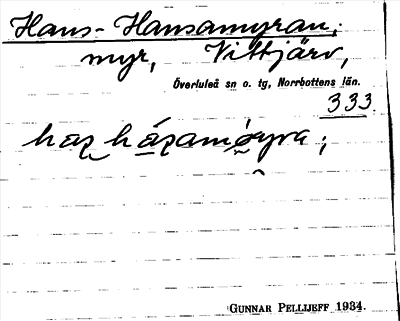 Hans-Hansamyran;
myr, Vittjärv,
Överluleå sn o. tg, Norrbottens län.
333
GUNNAR PELLIJEFF 1934.